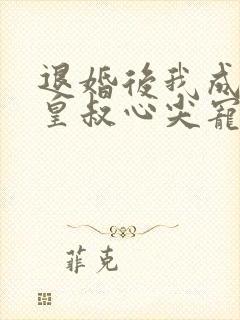 退婚後我成
皇叔心尖寵
菲克